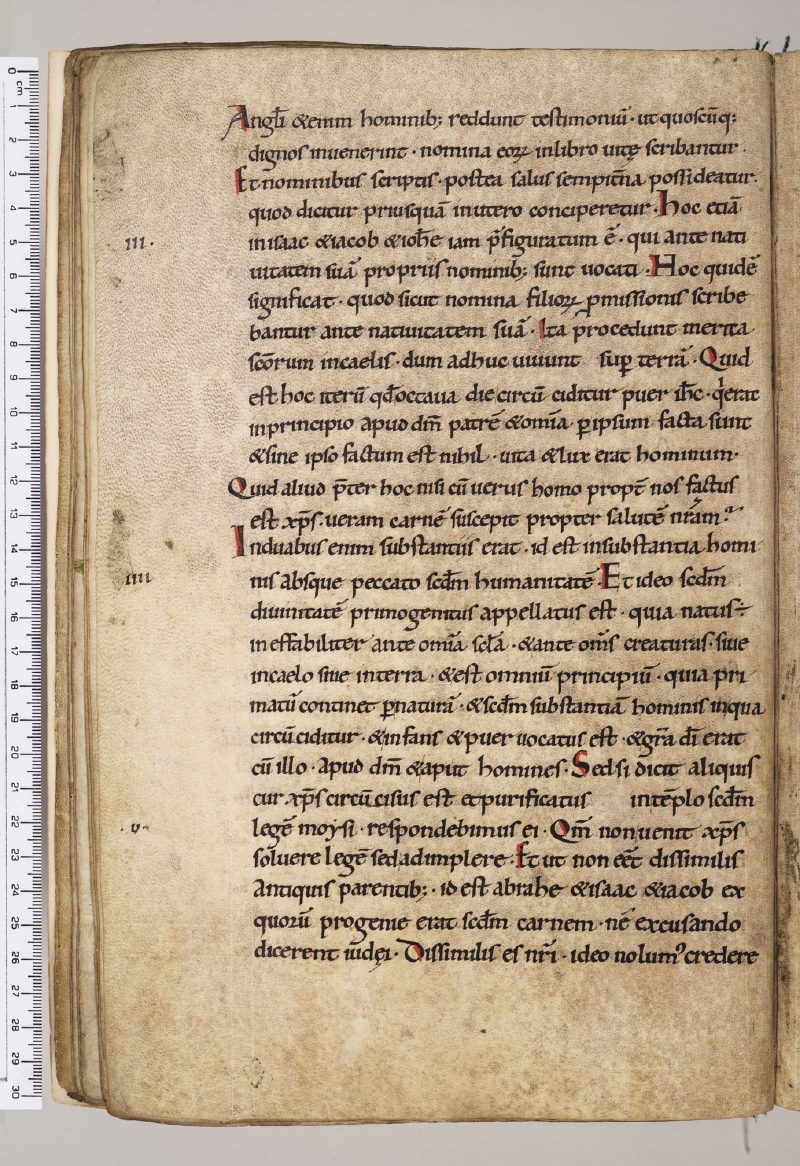 Angli &enim hominib; reddunt testimoniū · ut quoscūq;
dignos inuenerint · nomina eoꝝ inlibro uitę scribantur ·
Et nominibus scriptis · postea salus sempit̄na possideatur ·
quod dicitur priusquā inutero conciperetur · Hoc etiā
III ·
inisaac &iacob &ioh̄e iam p̄figuratum ē · qui ante nati
uitatem suā propriis nominib; sunt uocati · Hoc quidē
significat · quod sicut nomina filioꝝ ꝓmissionis scribe
bantur ante natiuitatem suā · Ita procedunt merita
sc̄orum incaelis · dum adhuc uiuunt sup̄ terrā · Quid
est hoc iterū qd̄ octaua die circū ciditur puer ih̄c · q̄ erat
inprincipio apud dm̄ patrē &om̄ia ꝑipsum facta sunt
&sine ipso factum est nihil · uita &lux erat hominum ·
Quid aliud p̄ter hoc nisi cū uerus homo propt̄ nos factus
est xp̄s · ueram carnē suscepit propter salutē nr̄am ·
Induabus enim substantiis erat · id est insubstantia homi
IIII
nis absque peccato scd̄m humanitatē · Et ideo scd̄m
diuinitatē primogenitus appellatus est · quia natus ÷
ineffabiliter ante om̄ia scl̄a · &ante om̄s creaturas · siue
incaelo siue interra · &est omniū principiū · quia pri
matū continet ꝑnaturā · &scd̄m substantiā hominis inqua
circū ciditur · &infans &puer uocatus est · &gr̄a dī erat
cū illo · apud dm̄ &aput homines · Sed si dicit aliquis
cur xp̄s circūcisus est etpurificatus intēplo scd̄m
· v ·
legē moysi · respondebimus ei · Qm̄ non uenit xp̄s
soluere legē sedadimplere · Et ut non eēt dissimilis
Antiquis parentib; · id est abrahe &isaac &iacob ex
quorū progenie erat scd̄m carnem · ne excusando
dicerent iudęi · Dissimilis es nr̄i · ideo nolumꝰ credere